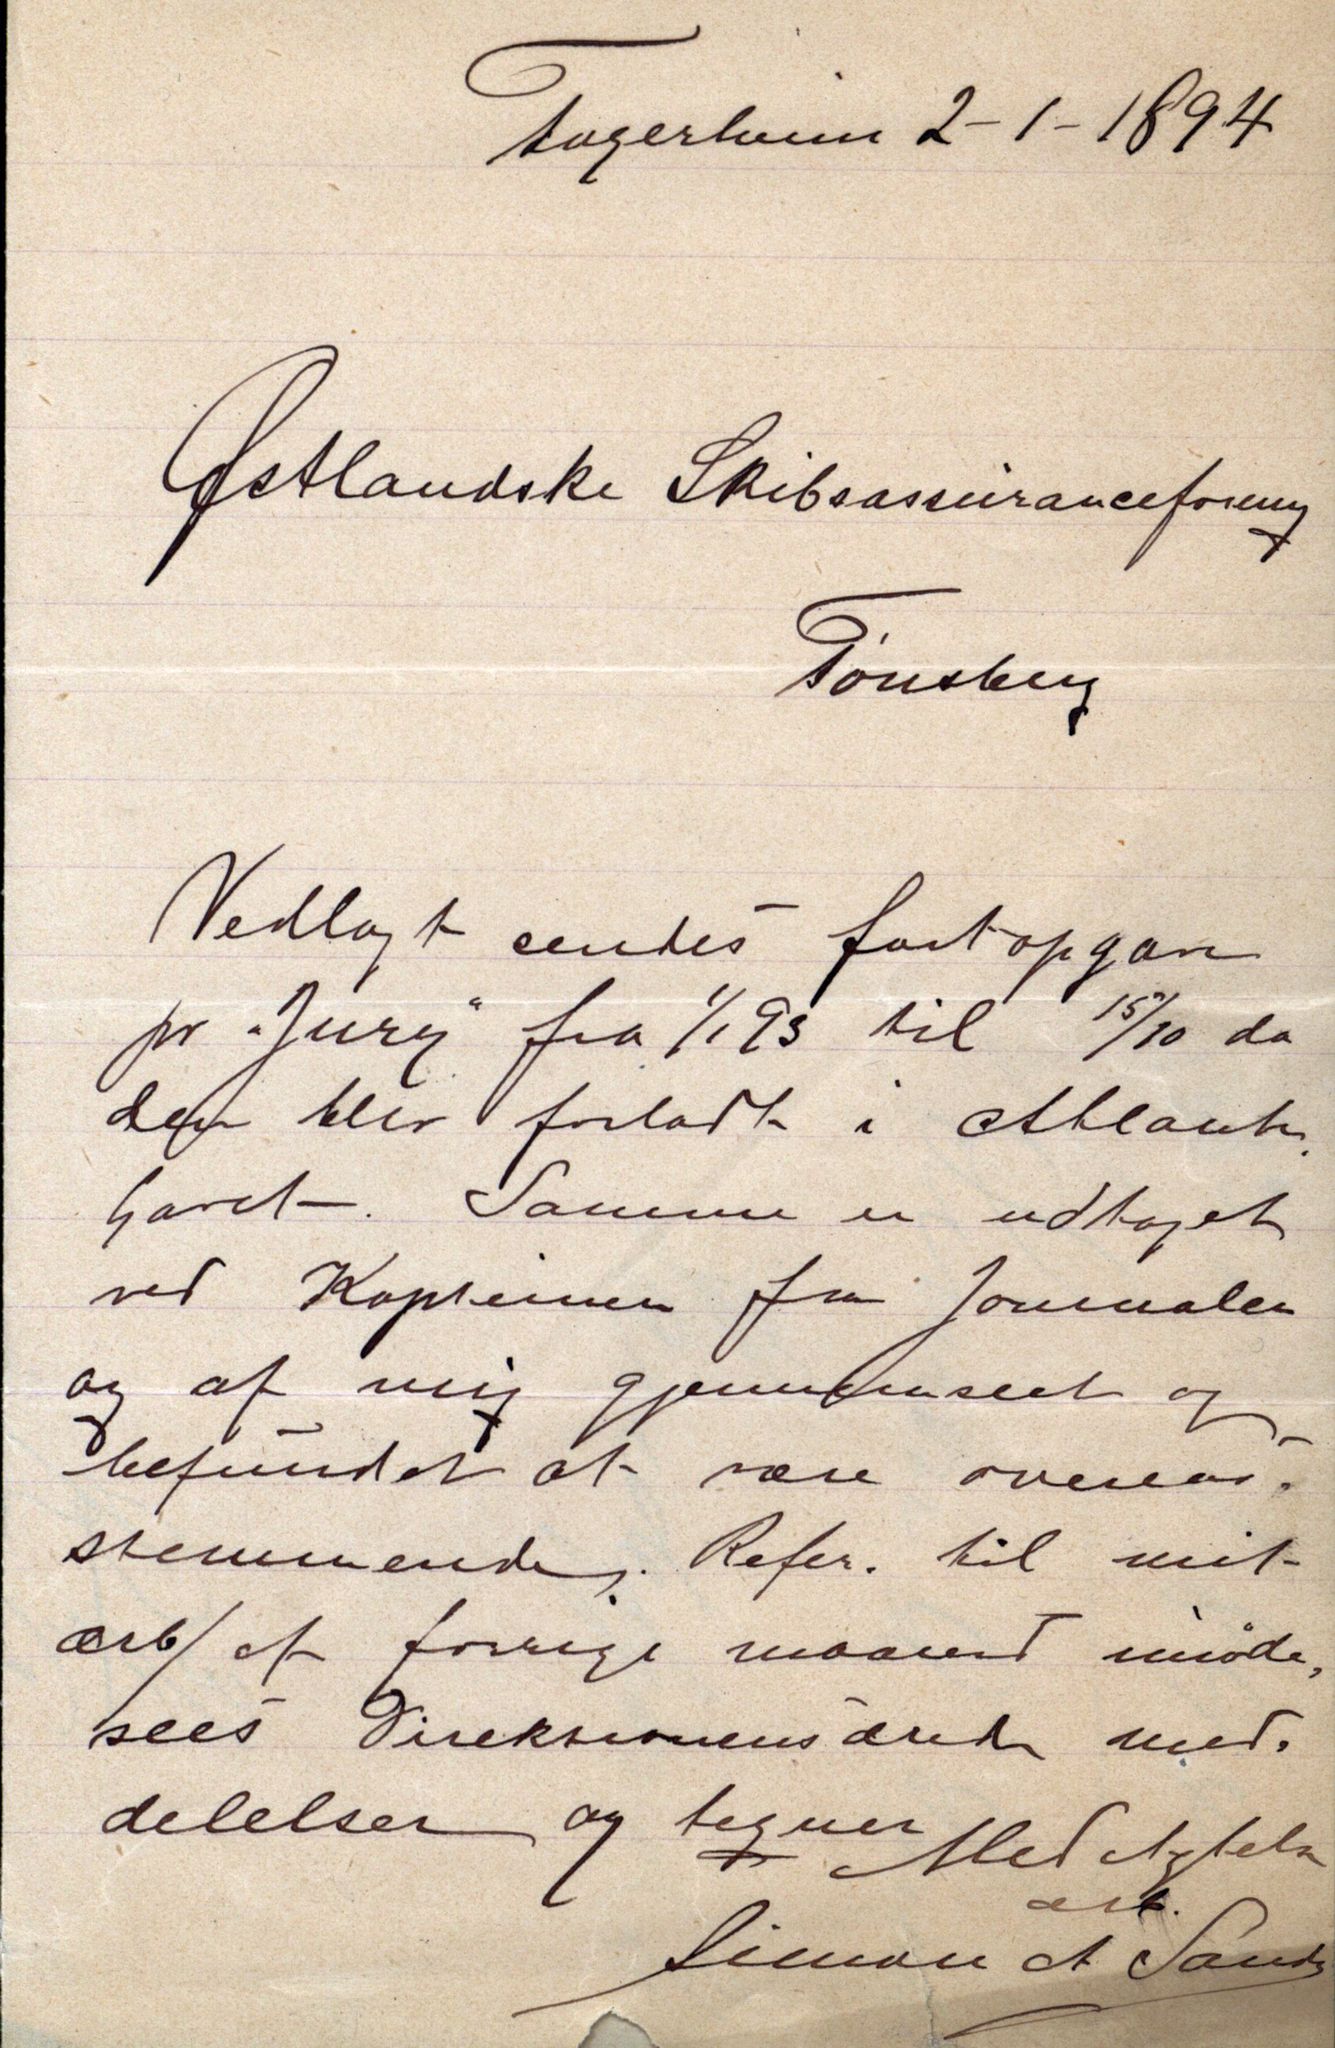 Fagerheim 2-1-1894
Østlandske Skibsassuranceforening
Tönsberg
Vedlagt sendes fartopgave
pr "Jury" fra 1/1 93 til 15/10 da
den blev forladt i Atlant.
havet. Samme er udtaget
ved Kapteinen fra Journalen
og af mig gjennemseet og
befundet at være overens-
stemmende. Refer. til mit
ærb/ af forrige maaned imöde-
sees Direktionens ærede med-
delelser og tegner Med Agtelse
ærb.
Simon A Sande